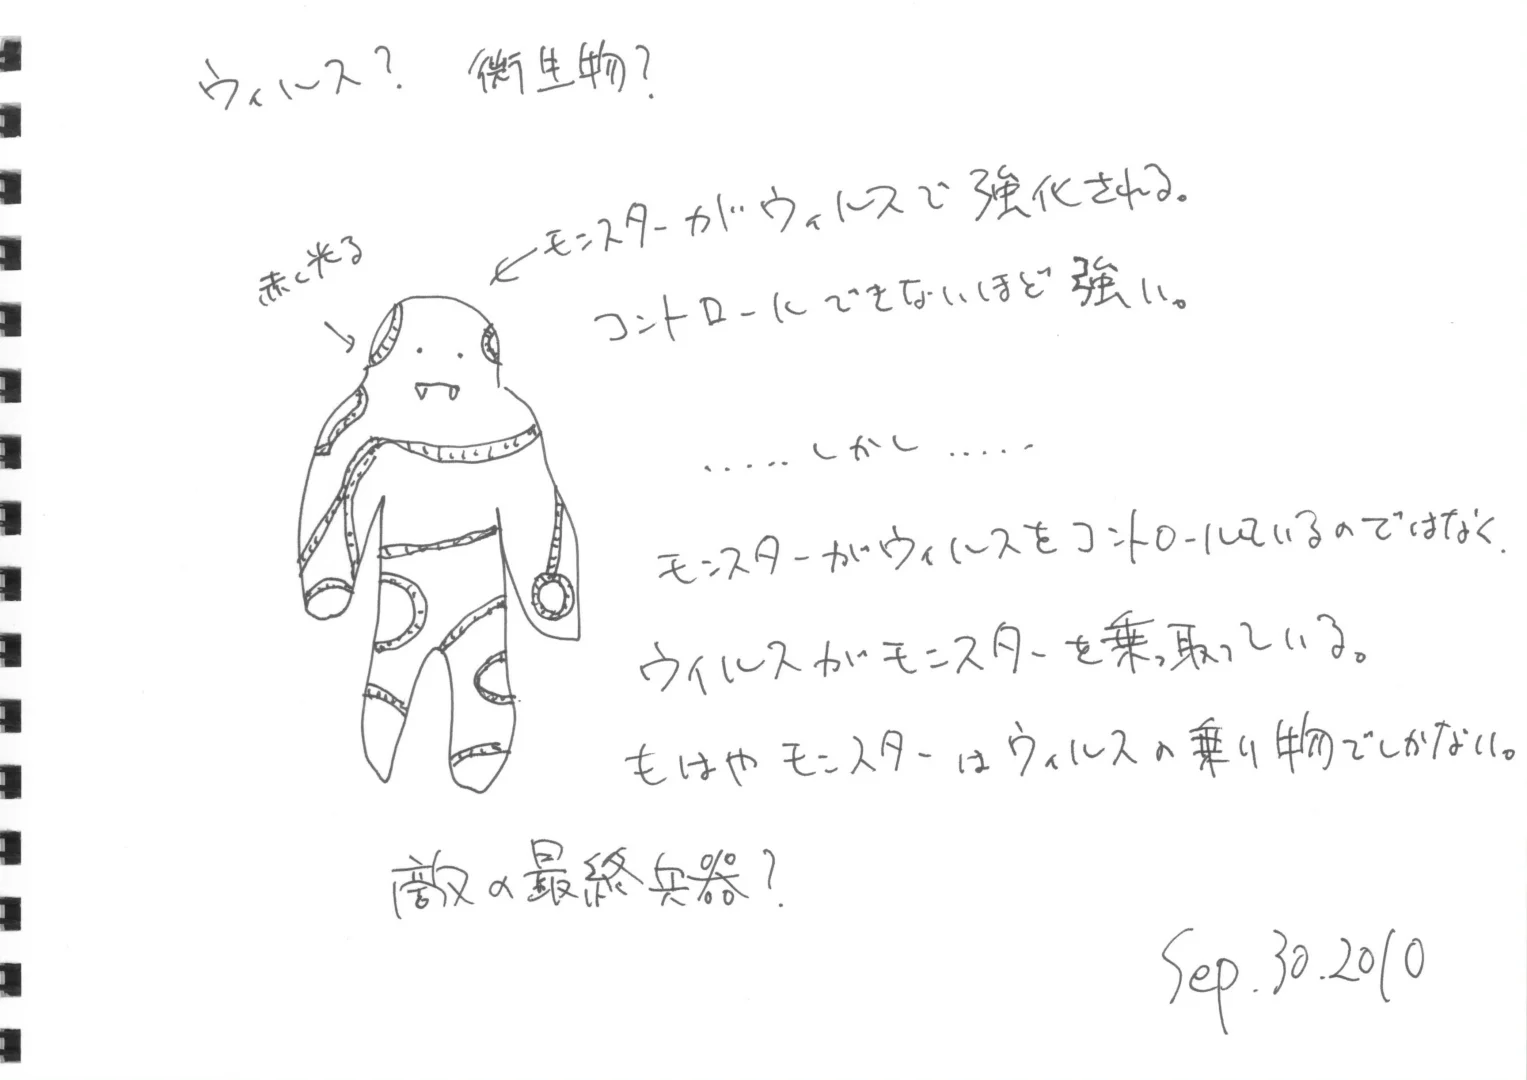 ウィルス? 微生物?
モンスターがウィルスで強化される。
赤く光る
コントロールできないほど強い。
.....しかし.....
モンスターがウィルスをコントロールしているのではなく、
ウィルスがモンスターを乗っ取っている。
もはやモンスターはウィルスの乗り物でしかない。
敵の最終兵器?
Sep.30.2010